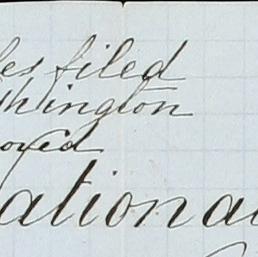 les filed
shington
oved
ational